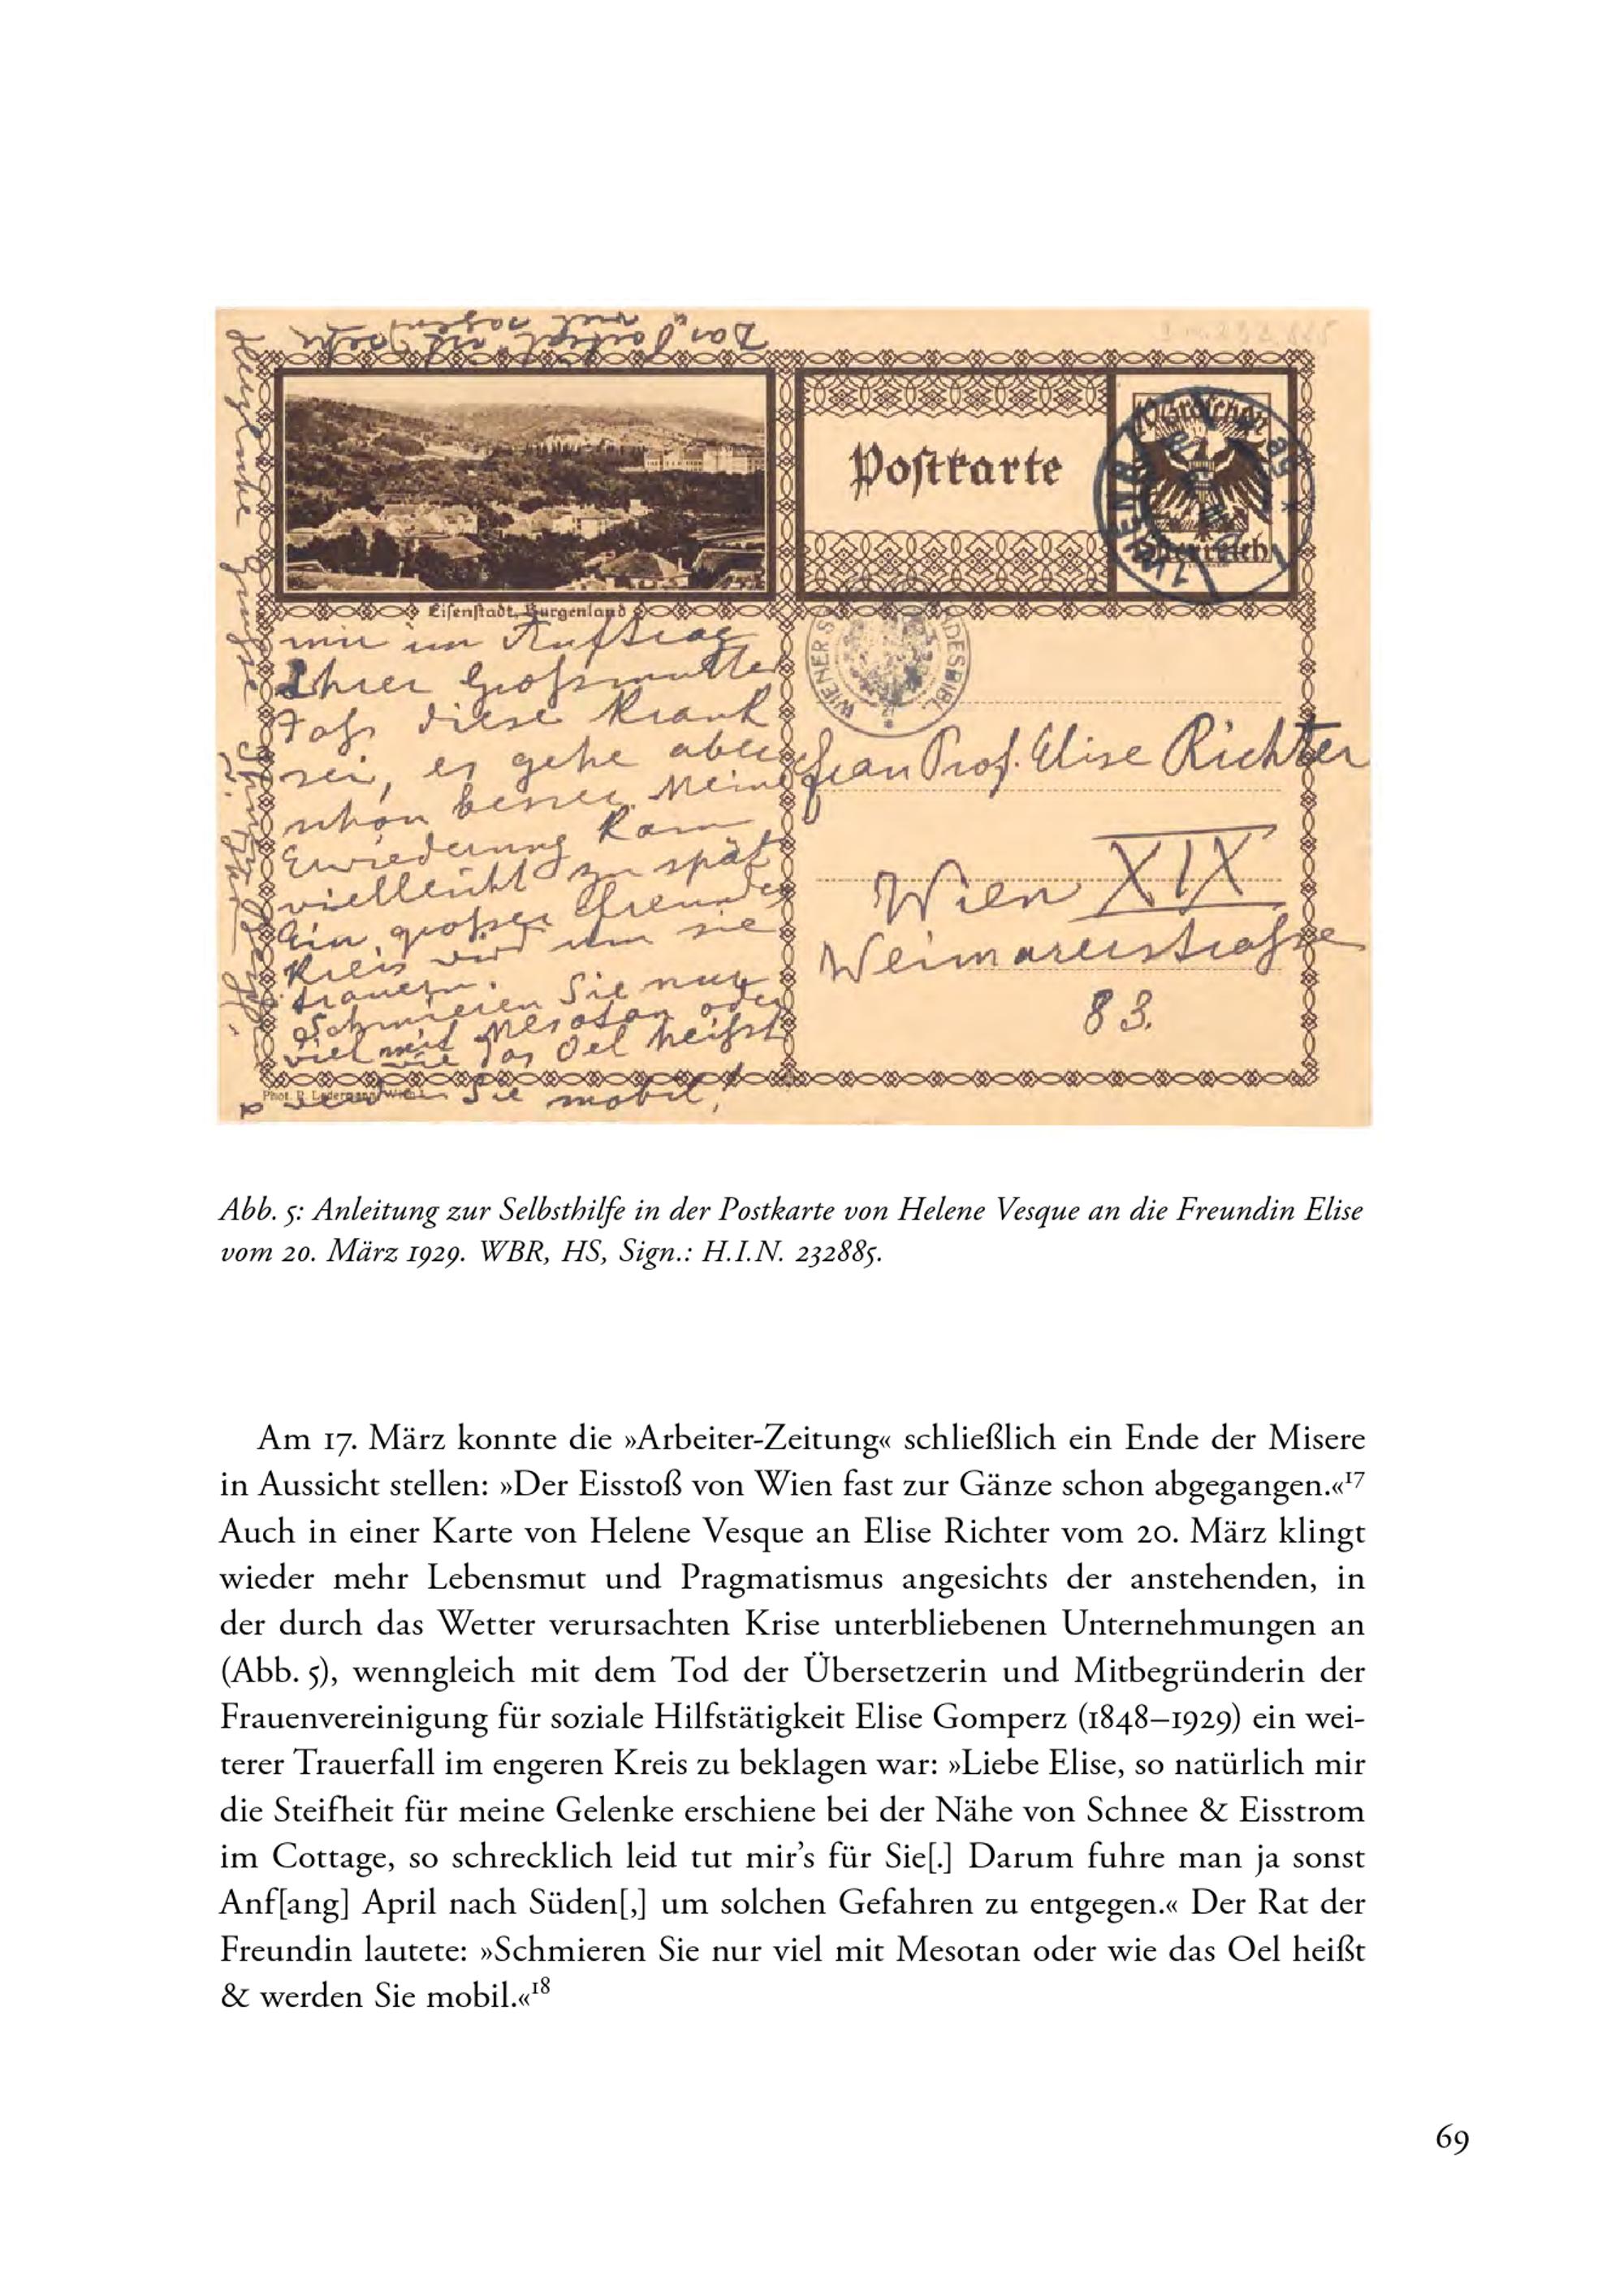 Das "Porträt" ist sehr
viel sagend
Postkarte
10 Groschen
Österreich
1 WIEN
Eisenstadt, Burgenland
WIENER
mir im Auftrag
Ihrer Großmutter
daß diese krank
sei, es gehe aber
schon besser. Meine
Erwiederung kam
vielleicht zu spät
Ein großer Freundes
Kreis wird um sie
trauern.
Schmieren Sie nur
viel mit Mesotan oder
wie das Oel heißt
& werden Sie mobil!
Phot. P. Ledermann, Wien
Herzliche Grüße
Frau Prof. Elise Richter
Wien XIX
Weimarerstraße
83.
Abb. 5: Anleitung zur Selbsthilfe in der Postkarte von Helene Vesque an die Freundin Elise
vom 20. März 1929. WBR, HS, Sign.: H.I.N. 232885.
Am 17. März konnte die »Arbeiter-Zeitung« schließlich ein Ende der Misere
in Aussicht stellen: »Der Eisstoß von Wien fast zur Gänze schon abgegangen.«17
Auch in einer Karte von Helene Vesque an Elise Richter vom 20. März klingt
wieder mehr Lebensmut und Pragmatismus angesichts der anstehenden, in
der durch das Wetter verursachten Krise unterbliebenen Unternehmungen an
(Abb. 5), wenngleich mit dem Tod der Übersetzerin und Mitbegründerin der
Frauenvereinigung für soziale Hilfstätigkeit Elise Gomperz (1848–1929) ein wei-
terer Trauerfall im engeren Kreis zu beklagen war: »Liebe Elise, so natürlich mir
die Steifheit für meine Gelenke erschiene bei der Nähe von Schnee & Eisstrom
im Cottage, so schrecklich leid tut mir's für Sie[.] Darum fuhre man ja sonst
Anf[ang] April nach Süden[,] um solchen Gefahren zu entgegen.« Der Rat der
Freundin lautete: »Schmieren Sie nur viel mit Mesotan oder wie das Oel heißt
& werden Sie mobil.«18
69